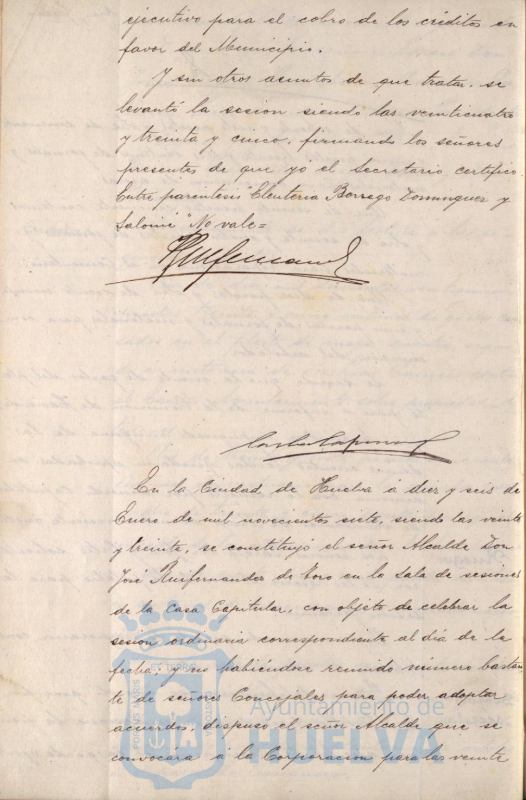 ejecutivo para el cobro de los créditos en
favor del Municipio.
Y sin otros asuntos de que tratar, se
levantó la sesion siendo las veinticuatro
y treinta y cinco, firmando los señores
presentes de que yo el Secretario certifico.
Entre parentesis "Eleuteria Borrego Dominguez y
" No vale=
En la Ciudad de Huelva á diez y seis de
Enero de mil novecientos siete, siendo las veinte
y treinta, se constituyó el señor Alcalde Don
José Ruifernandez de Toro en la Sala de sesiones
de la Casa Capitular, con objeto de celebrar la
sesión ordinaria correspondiente al día de la
fecha; y no habiéndose reunido número bastan-
te de señores Concejales para poder adoptar
acuerdo, dispuso el señor Alcalde que se
convocára á la Corporacion para las veinte
PORTUS MARIS ET TERRÆ CUSTODIA
Ayuntamiento de
HUELVA